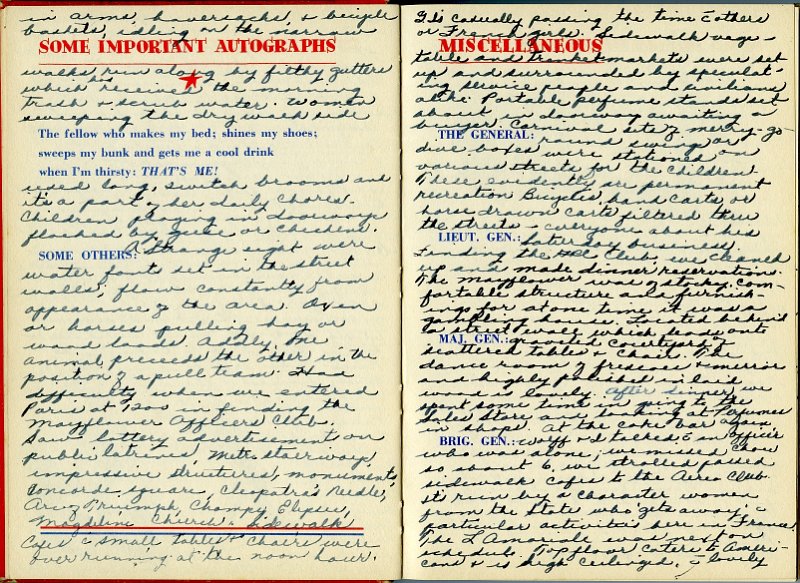 in arms, haversacks, & bicycle
baskets, idling on the narrow
SOME IMPORTANT AUTOGRAPHS
walks, run along by filthy gutters
which receive the morning
trash & scrub water. Women
sweeping the dry walk side
The fellow who makes my bed; shines my shoes;
sweeps my bunk and gets me a cool drink
when I'm thirsty: THAT'S ME!
used long, switch brooms and
it's a part of her daily chores.
Children playing in doorways
flocked by geese or chickens.
SOME OTHERS: A strange sight were
water fonts set in the street
walls; flow constantly from
appearance of the area. Oxen
or horses pulling hay or
wood loads. Oddly, one
animal preceeds the other in the
position of a pull team. Had
difficulty when we entered
Paris at 1200 in finding the
Mayflower Officers Club.
Saw lottery advertisement on
public latrines, Metr. stairways,
impressive structures, monuments,
Concorde square, Cleopatra's Needle,
Arc of Triumph, Champs Elysees,
Magdeline Church. Sidewalk
cafes c small tables & chairs were
over running at the noon hour.
G.I.s casually passing the time c others
or French girls. Sidewalk vege-
MISCELLANEOUS
table and trinket markets were set
up and surrounded by speculat-
ing service people and civilians
alike. Portable perfume stands set
about a doorway awaiting a
buyer. Carnival sets of merry-go-
THE GENERAL: round swing or
dive boxes were stationed on
various streets for the children.
These evidently are permanent
recreation. Bicycles, hand carts, or
horse drawn carts filtered thru
the streets - everyone about his
LIEUT. GEN.: Saturday business.
Finding the Club, we cleaned
up and made dinner reservation.
The Mayflower was of stocky, com-
fortable structure a la furnish-
ings for at one time it was a
gambling house. Located behind
a street wall which leads onto
MAJ. GEN.: graveled courtyard of
scattered tables & chairs. The
dance room of frescoes & mirrors
and highly polished in laid
wood is lovely. After dinner, we
spent some time in going to the
Sales Store and looking at Perfumes
in shops. At the coke bar again,
BRIG. GEN.: Woyff & I talked c an officer
who was alone; we missed chow
so about 6, we strolled passed
sidewalk cafes to the Aero Club.
It's run by a character women
from the State who gets away c
particular activities here in France.
The L'Amoriale was next on
schedule. Top floor caters to Ameri-
cans & is high ceilinged, c lovely